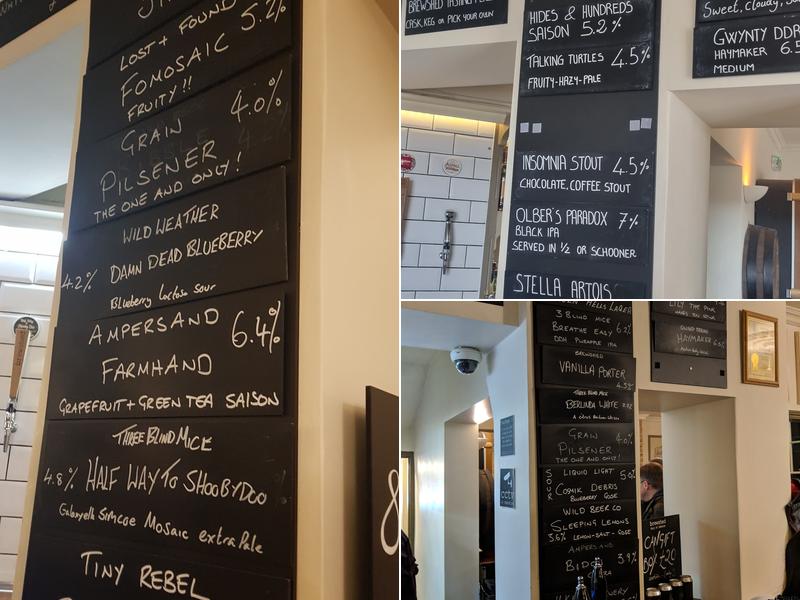 LOST + FOUND 5.2%
FOMOSAIC
FRUITY!!
GRAIN 4.0%
PILSENER
THE ONE AND ONLY!
WILD WEATHER
4.2% DAMN DEAD BLUEBERRY
Blueberry Lactose Sour
AMPERSAND 6.4%
FARMHAND
GRAPEFRUIT + GREEN TEA SAISON
THREE BLIND MICE
4.8% HALF WAY TO SHOOBYDOO
Galaxy Simcoe Mosaic extra Pale
TINY REBEL
8
CASK, KEG OR PICK YOUR OWN
HIDES & HUNDREDS
SAISON 5.2%
TALKING TURTLES 4.5%
FRUITY-HAZY-PALE
INSOMNIA STOUT 4.5%
CHOCOLATE.COFFEE STOUT
OLBER'S PARADOX 7%
BLACK IPA
SERVED IN ½ OR SCHOONER
STELLA ARTOIS
Sweet, cloudy,
GWYNTY DDR
HAYMAKER 6.5
MEDIUM
HELLS LAGER
3 BLIND MICE
BREATHE EASY 6.2%
DDH PINEAPPLE IPA
BREWSHED
VANILLA PORTER
THREE BLIND MICE
BERLINDA WHITE
GRAIN 4.0%
PILSENER
THE ONE AND ONLY!
SOUR
LIQUID LIGHT
COSMIK DEBRIS
BLUEBERRY GOSE
WILD BEER CO
SLEEPING LEMONS
3.6% LEMON-SALT-GOSE
AMPERSAND
BIDO 3.9%
LILY THE PINK
HAYMAKER
cctv
brewshed
CAN GIFT
BOX £20